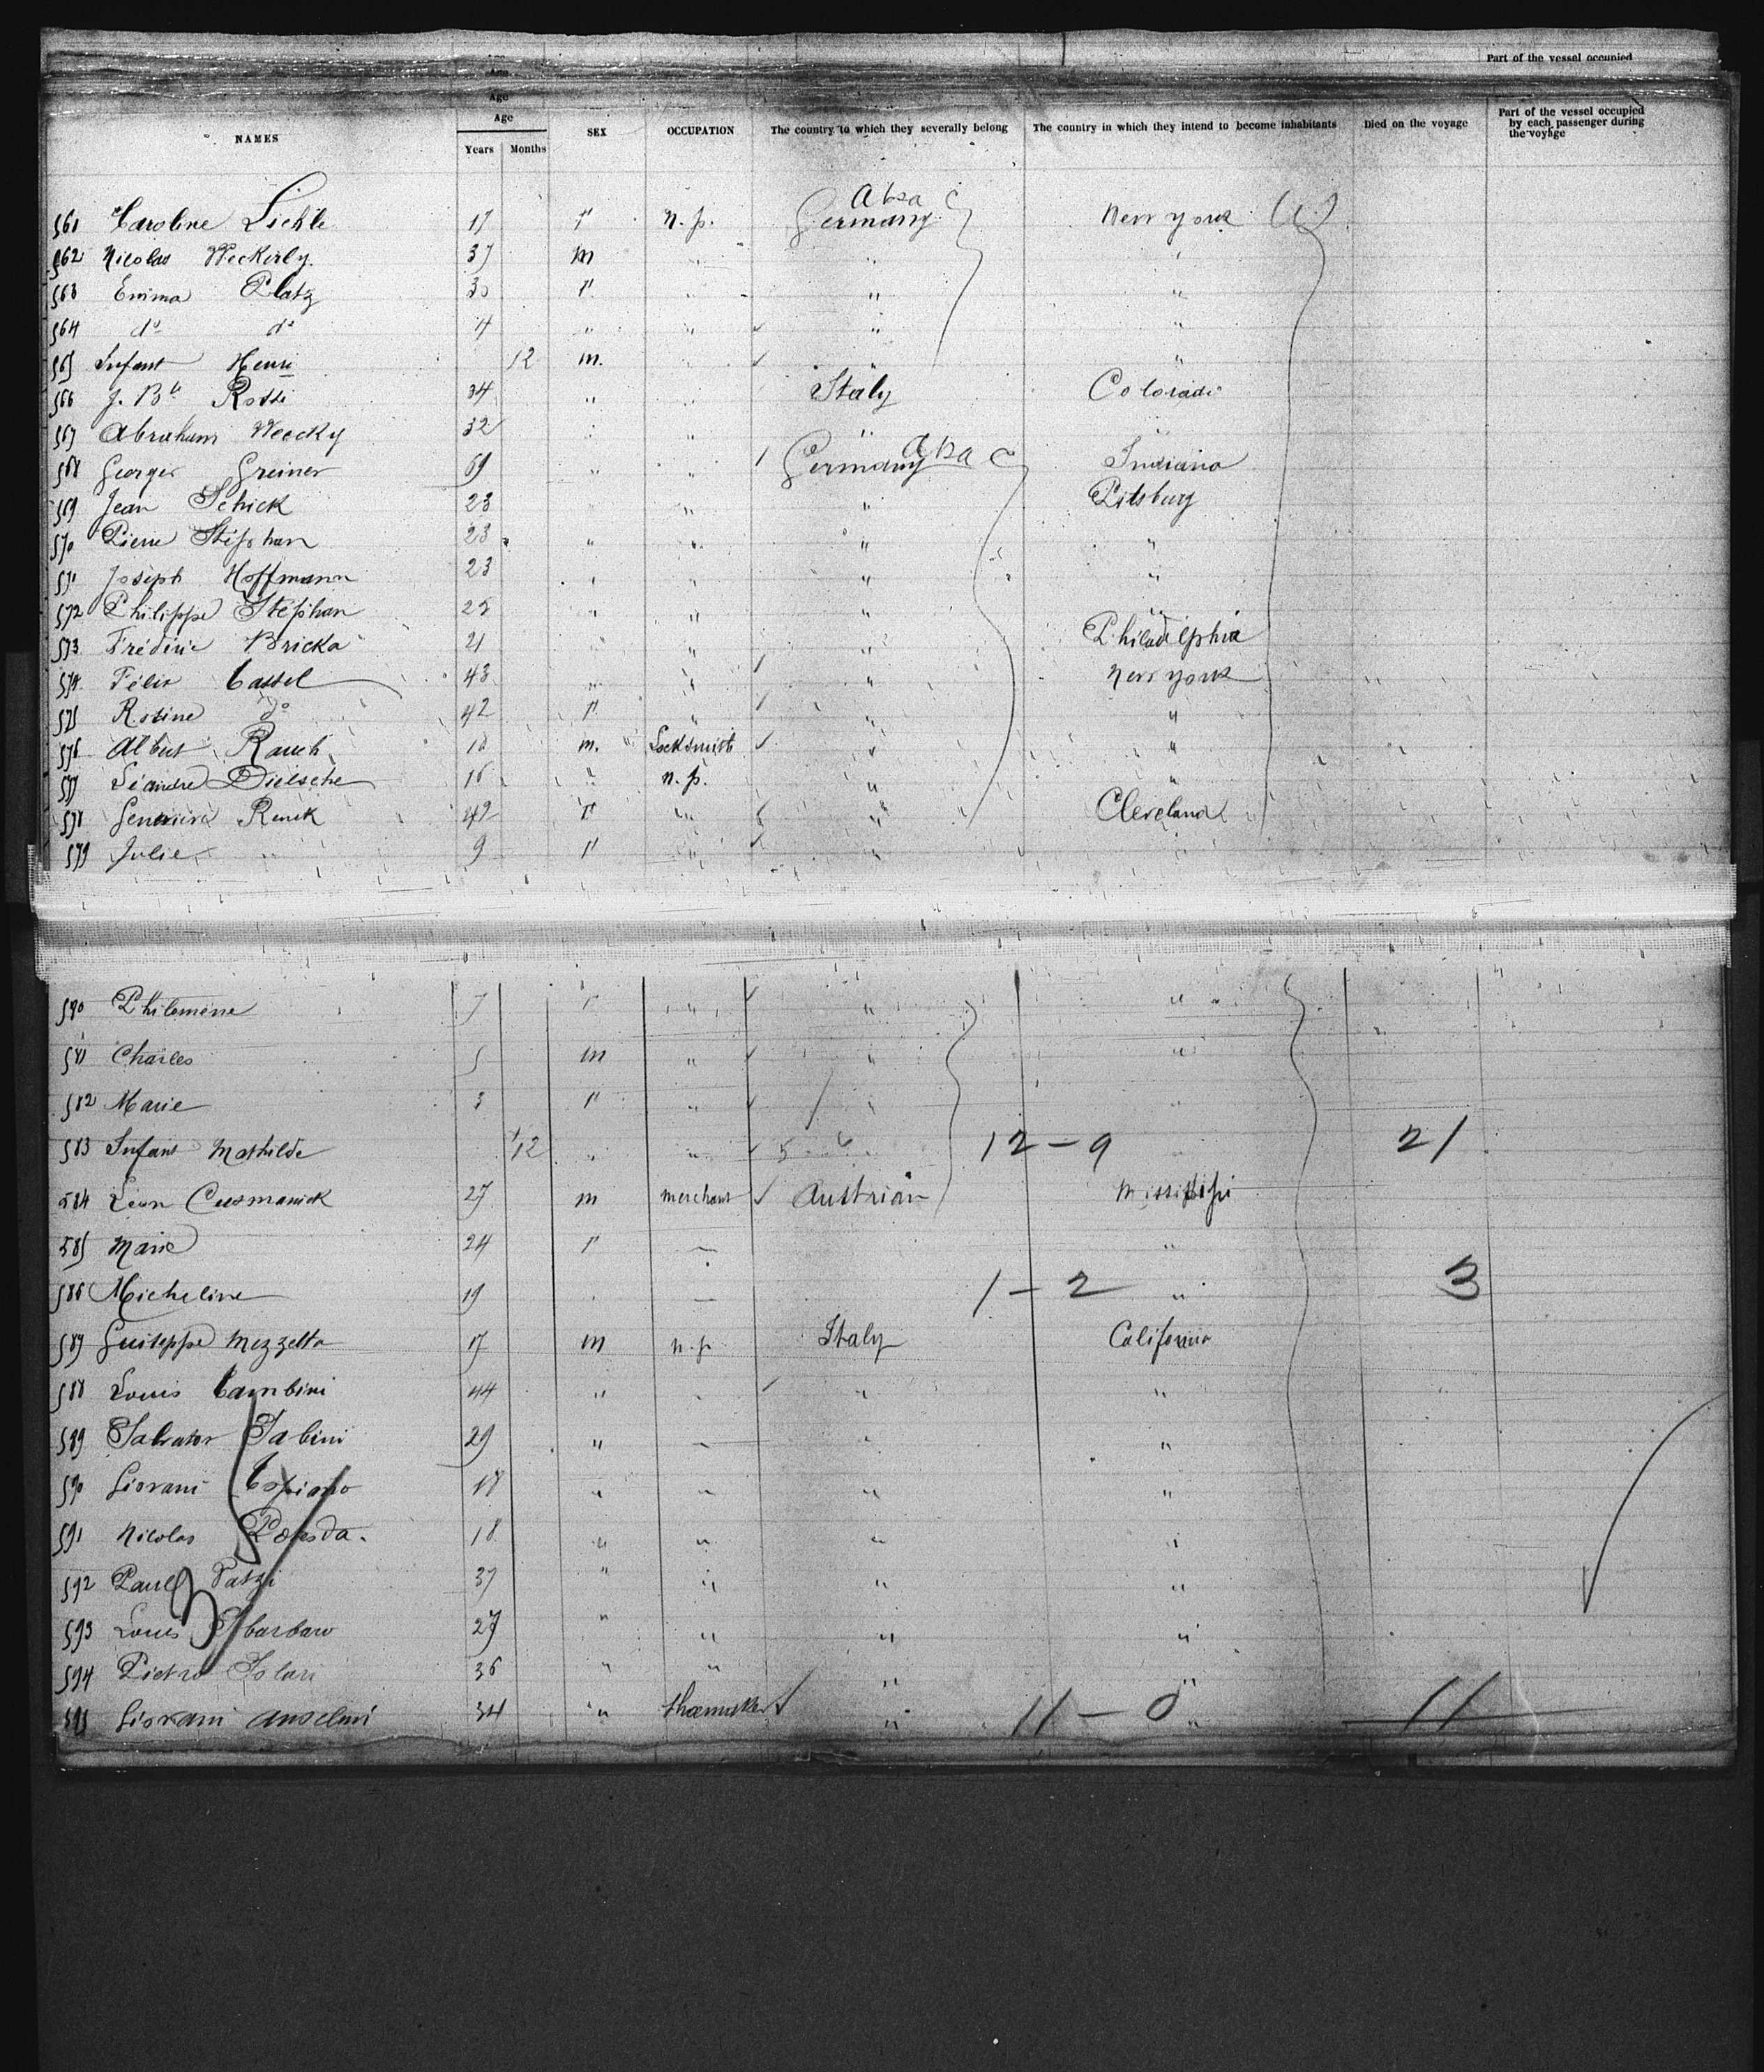 Part of the vessel occupied
Age
Age
NAMES Years Months SEX OCCUPATION The country to which they severally belong The country in which they intend to become inhabitants Died on the voyage Part of the vessel occupied by each passenger during the voyage
561 Caroline 17 F n. p. Germany New York
562 Nicolas Weckerly 37 m " "
563 Emma Platz 30 F " " " "
564 do do 4 " " " "
565 Infant Henri 12 m. " " "
566 J. Bte Rossi 34 " " Italy Colorado
567 Abraham Weecky 32 " " " "
568 Georges Greiner 69 " " Germany Indiana
569 Jean Schick 23 " " " Pitsburg
570 Pierre Stéphan 23 " " " "
571 Joseph Hoffmann 23 " " " "
572 Philippe Stéphan 25 " " " "
573 Frédéric Bricka 21 " " " Philadelphia
574 Félix Cassel 43 " " " New York
575 Rosine do 42 F " " "
576 Albert Rauch 18 m. Locksmith " "
577 Léandre 16 " n. p. " "
578 Renck 42 F " " Cleveland
579 Julie " 9 F " " "
580 Philomène 7 F " " "
581 Charles 5 m " " "
582 Marie 3 F " " "
583 Infant Mathilde 1/12 " " " 12 - 9 " 21
584 Leon Cusmanick 27 m merchant Austrian Missisipi
585 Marie 24 F — "
586 Micheline 19 " — 1 - 2 " 3
587 Guiseppe Mezzetta 17 m n. p. Italy California
588 Louis Cambini 44 " " " "
589 Salvator Sabini 29 " " " "
590 Giovani 18 " " " "
591 Nicolas 18 " " " "
592 Paul 37 " " " "
593 Louis Sbarbaro 27 " " " "
594 Pietro Solari 36 " " " "
595 Giovani Anselmi 34 " Shoemaker " 11 - 0 " 11